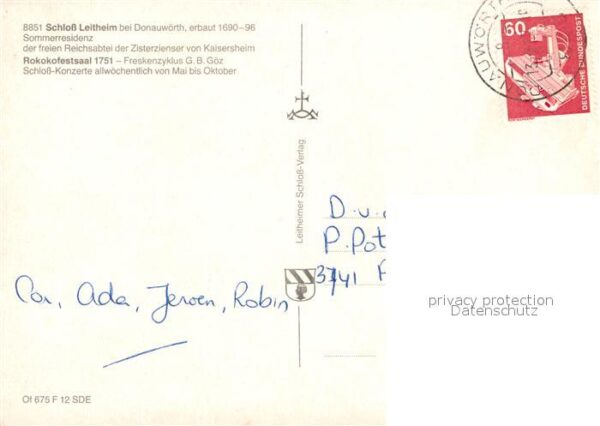 8851 Schloß Leitheim bei Donauwörth, erbaut 1690–96
Sommerresidenz
der freien Reichsabtei der Zisterzienser von Kaisersheim
Rokokofestsaal 1751 – Freskenzyklus G. B. Göz
Schloß-Konzerte allwöchentlich von Mai bis Oktober
DONAUWÖRTH
60
DEUTSCHE BUNDESPOST
Leitheimer Schloß-Verlag
D.u.
P. Pot
3741
Cor, Ada, Jeroen, Robin
privacy protection
Datenschutz
Of 675 F 12 SDE